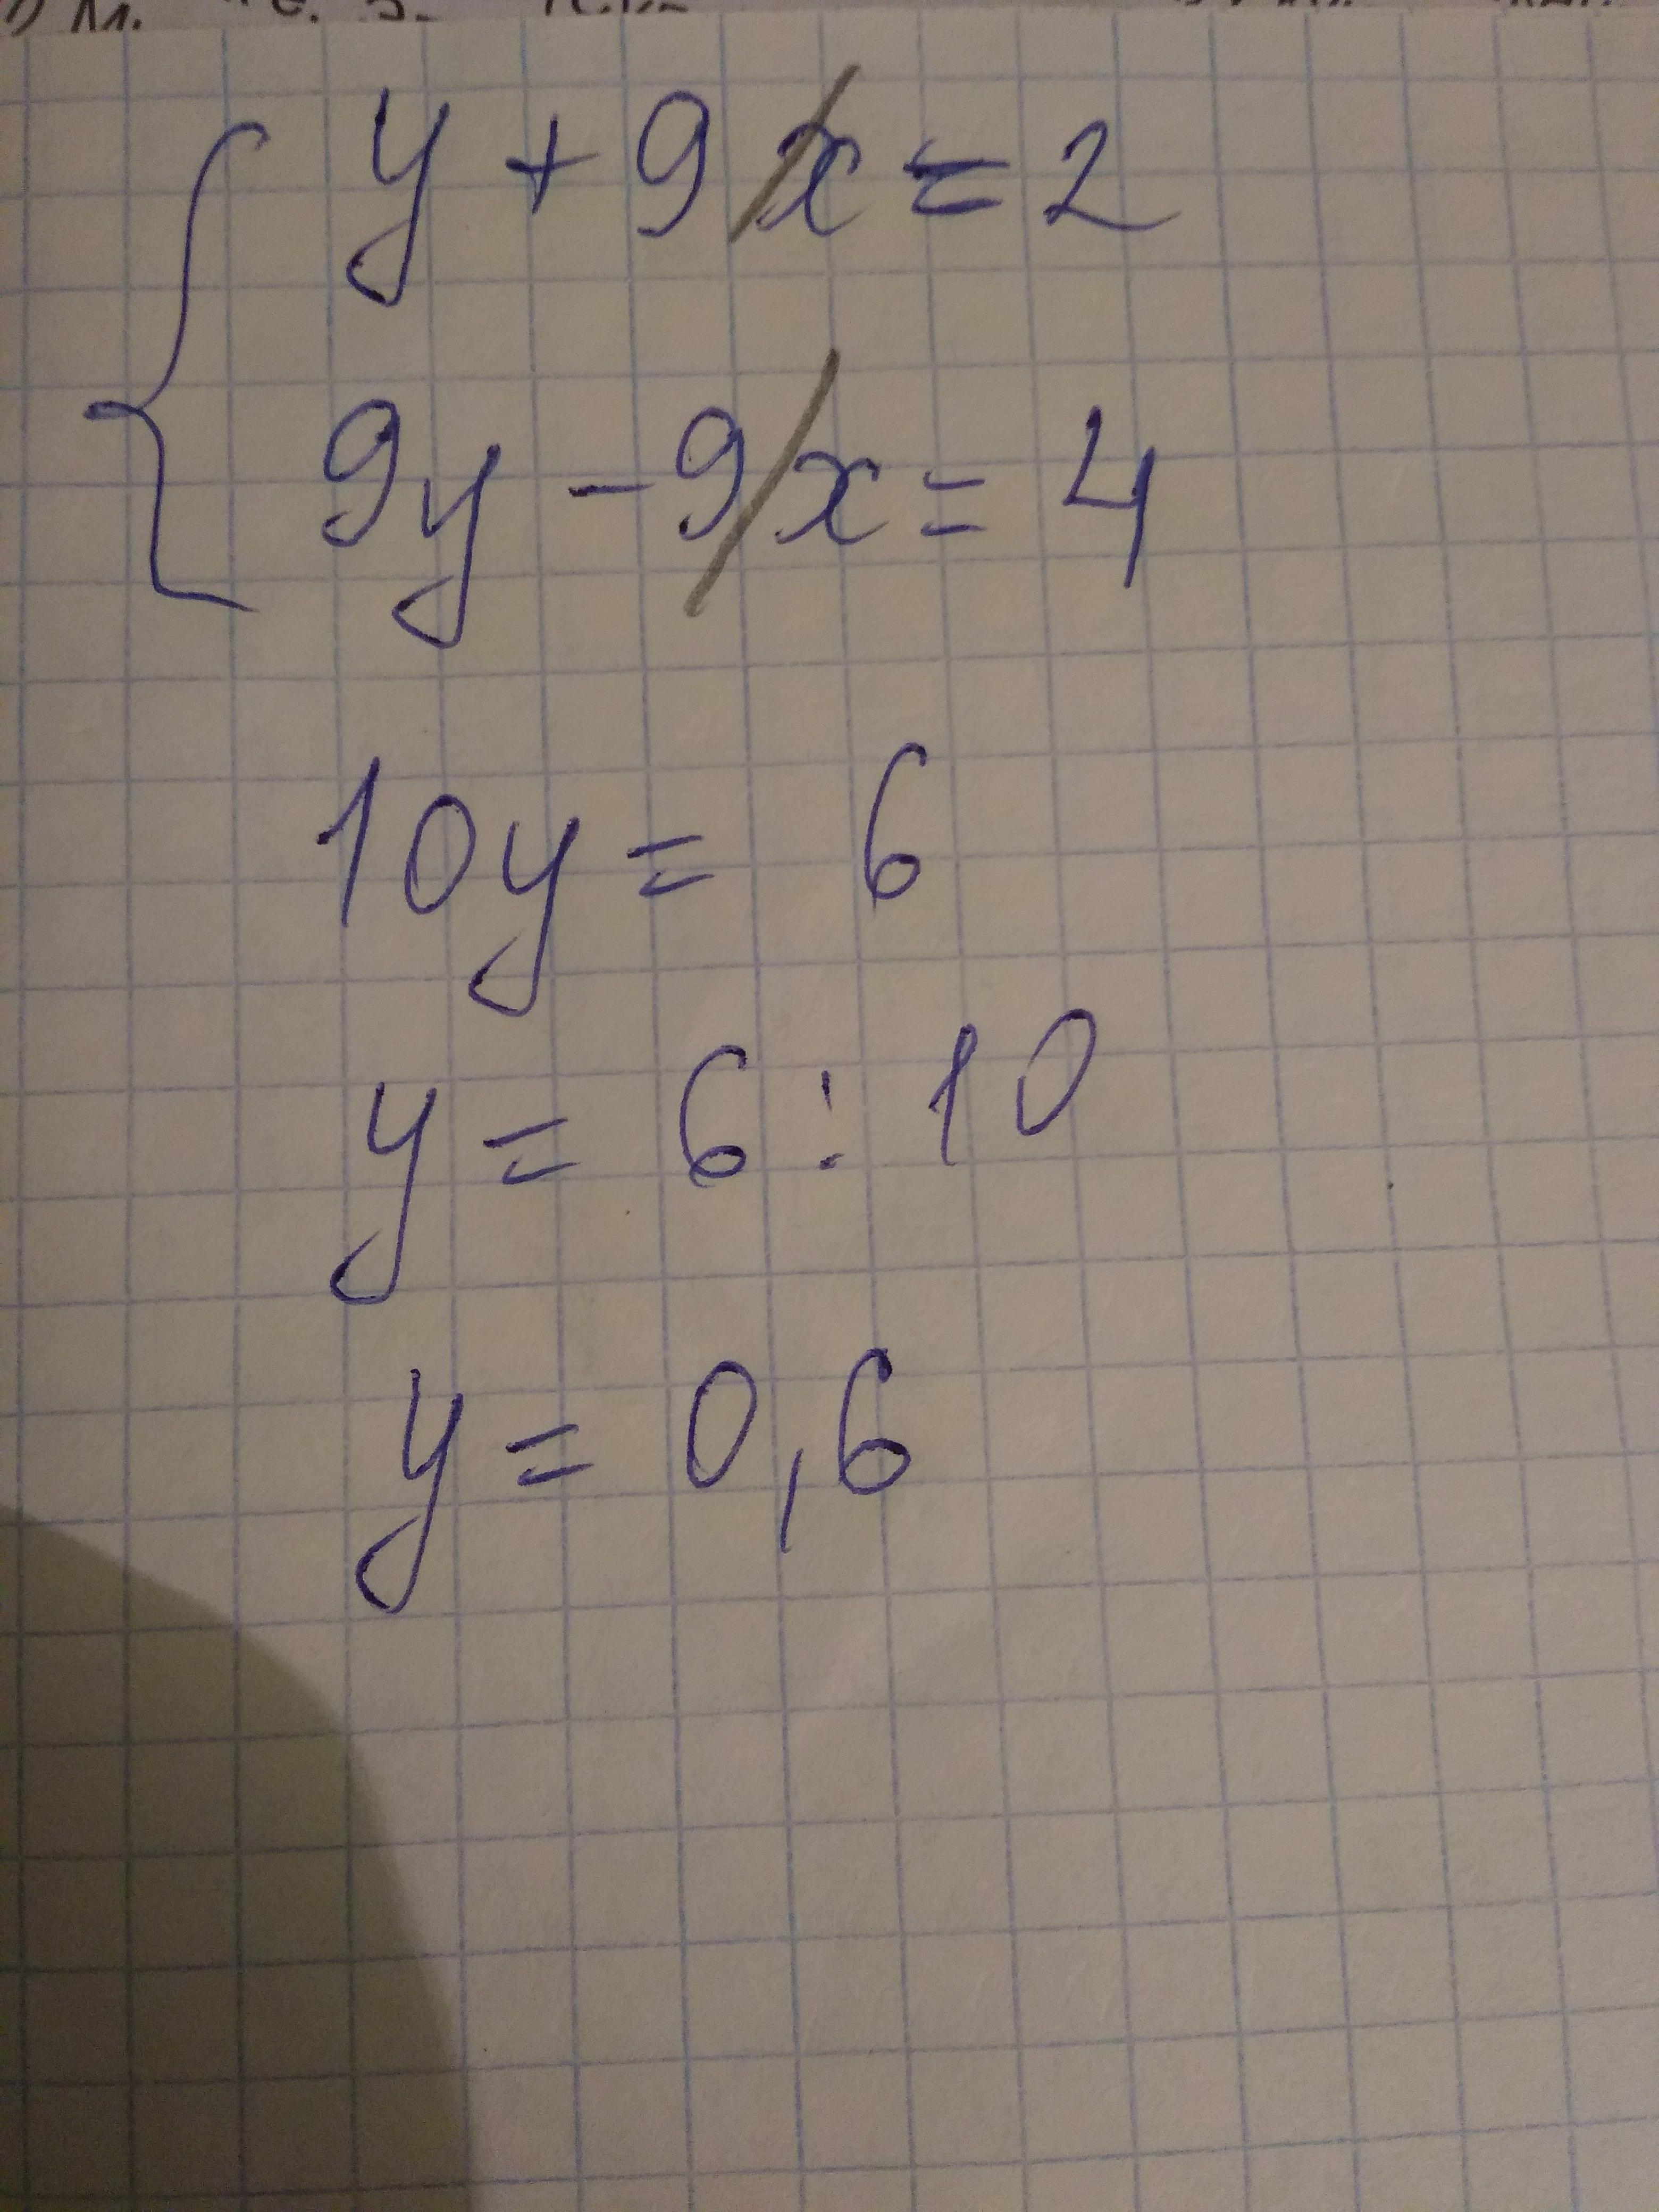 y + 9x = 2
9y - 9x = 4
10y = 6
y = 6 : 10
y = 0,6